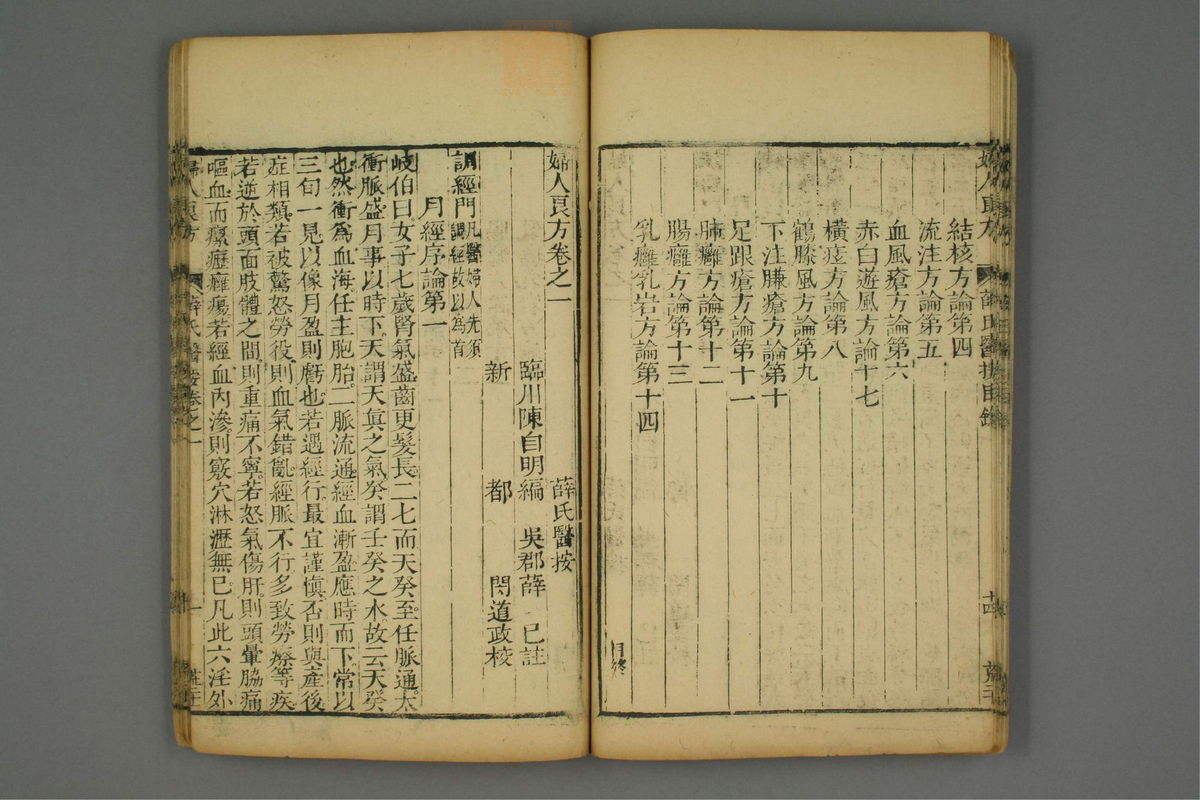 婦人良方
薛氏醫按目錄
結核方論第四
流注方論第五
血風瘡方論第六
赤白遊風方論十七
橫痃方論第八
鶴膝風方論第九
下注臁瘡方論第十
足跟瘡方論第十一
肺癰方論第十二
腸癰方論第十三
乳癰乳岩方論第十四
目終
婦人良方卷之一
薛氏醫按
臨川陳自明編
吳郡薛 已註
新都 閔道政校
調經門凡醫婦人先須
調經故以為首
月經序論第一
岐伯曰女子七歲腎氣盛齒更髮長二七而天癸至任脈通太
衝脈盛月事以時下天謂天眞之氣癸謂壬癸之水故云天癸
也然衝為血海任主胞胎二脈流通經血漸盈應時而下常以
三旬一見以像月盈則虧也若遇經行最宜謹愼否則與產後
症相類若被驚怒勞役則血氣錯亂經脈不行多致勞瘵等疾
若逆於頭面肢體之間則重痛不寧若怒氣傷肝則頭暈脇痛
嘔血而瘰癧癰瘍若經血內滲則竅穴淋瀝無已凡此六淫外
婦人良方
薛氏醫按卷之一
一